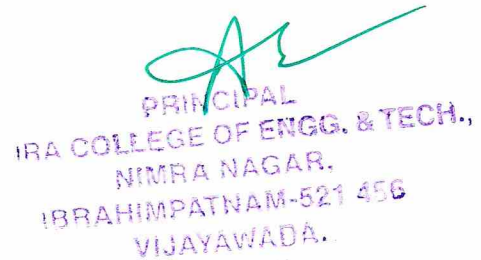 PRINCIPAL
IRA COLLEGE OF ENGG. & TECH.,
NIMRA NAGAR,
IBRAHIMPATNAM-521 456
VIJAYAWADA.